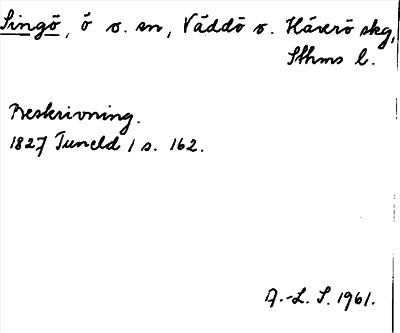 Singö, ö o. sn, Väddö o. Häverö skg,
Sthms l.
Beskrivning.
1827 Tuneld 1 s. 162.
A.-L. S. 1961.